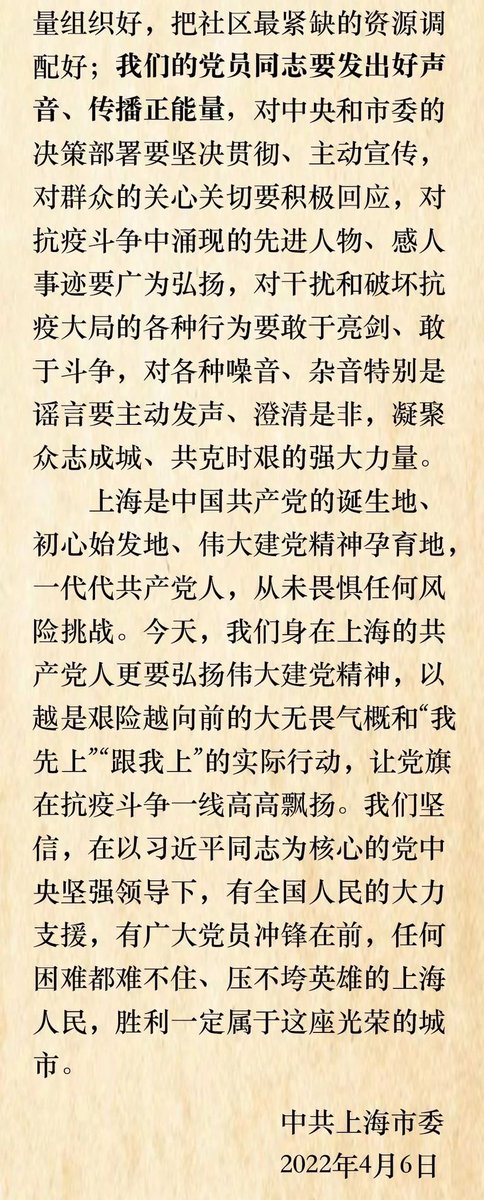 量组织好，把社区最紧缺的资源调
配好；我们的党员同志要发出好声
音、传播正能量，对中央和市委的
决策部署要坚决贯彻、主动宣传，
对群众的关心关切要积极回应，对
抗疫斗争中涌现的先进人物、感人
事迹要广为弘扬，对干扰和破坏抗
疫大局的各种行为要敢于亮剑、敢
于斗争，对各种噪音、杂音特别是
谣言要主动发声、澄清是非，凝聚
众志成城、共克时艰的强大力量。
上海是中国共产党的诞生地、
初心始发地、伟大建党精神孕育地，
一代代共产党人，从未畏惧任何风
险挑战。今天，我们身在上海的共
产党人更要弘扬伟大建党精神，以
越是艰险越向前的大无畏气概和“我
先上”“跟我上”的实际行动，让党旗
在抗疫斗争一线高高飘扬。我们坚
信，在以习近平同志为核心的党中
央坚强领导下，有全国人民的大力
支援，有广大党员冲锋在前，任何
困难都难不住、压不垮英雄的上海
人民，胜利一定属于这座光荣的城
市。
中共上海市委
2022年4月6日